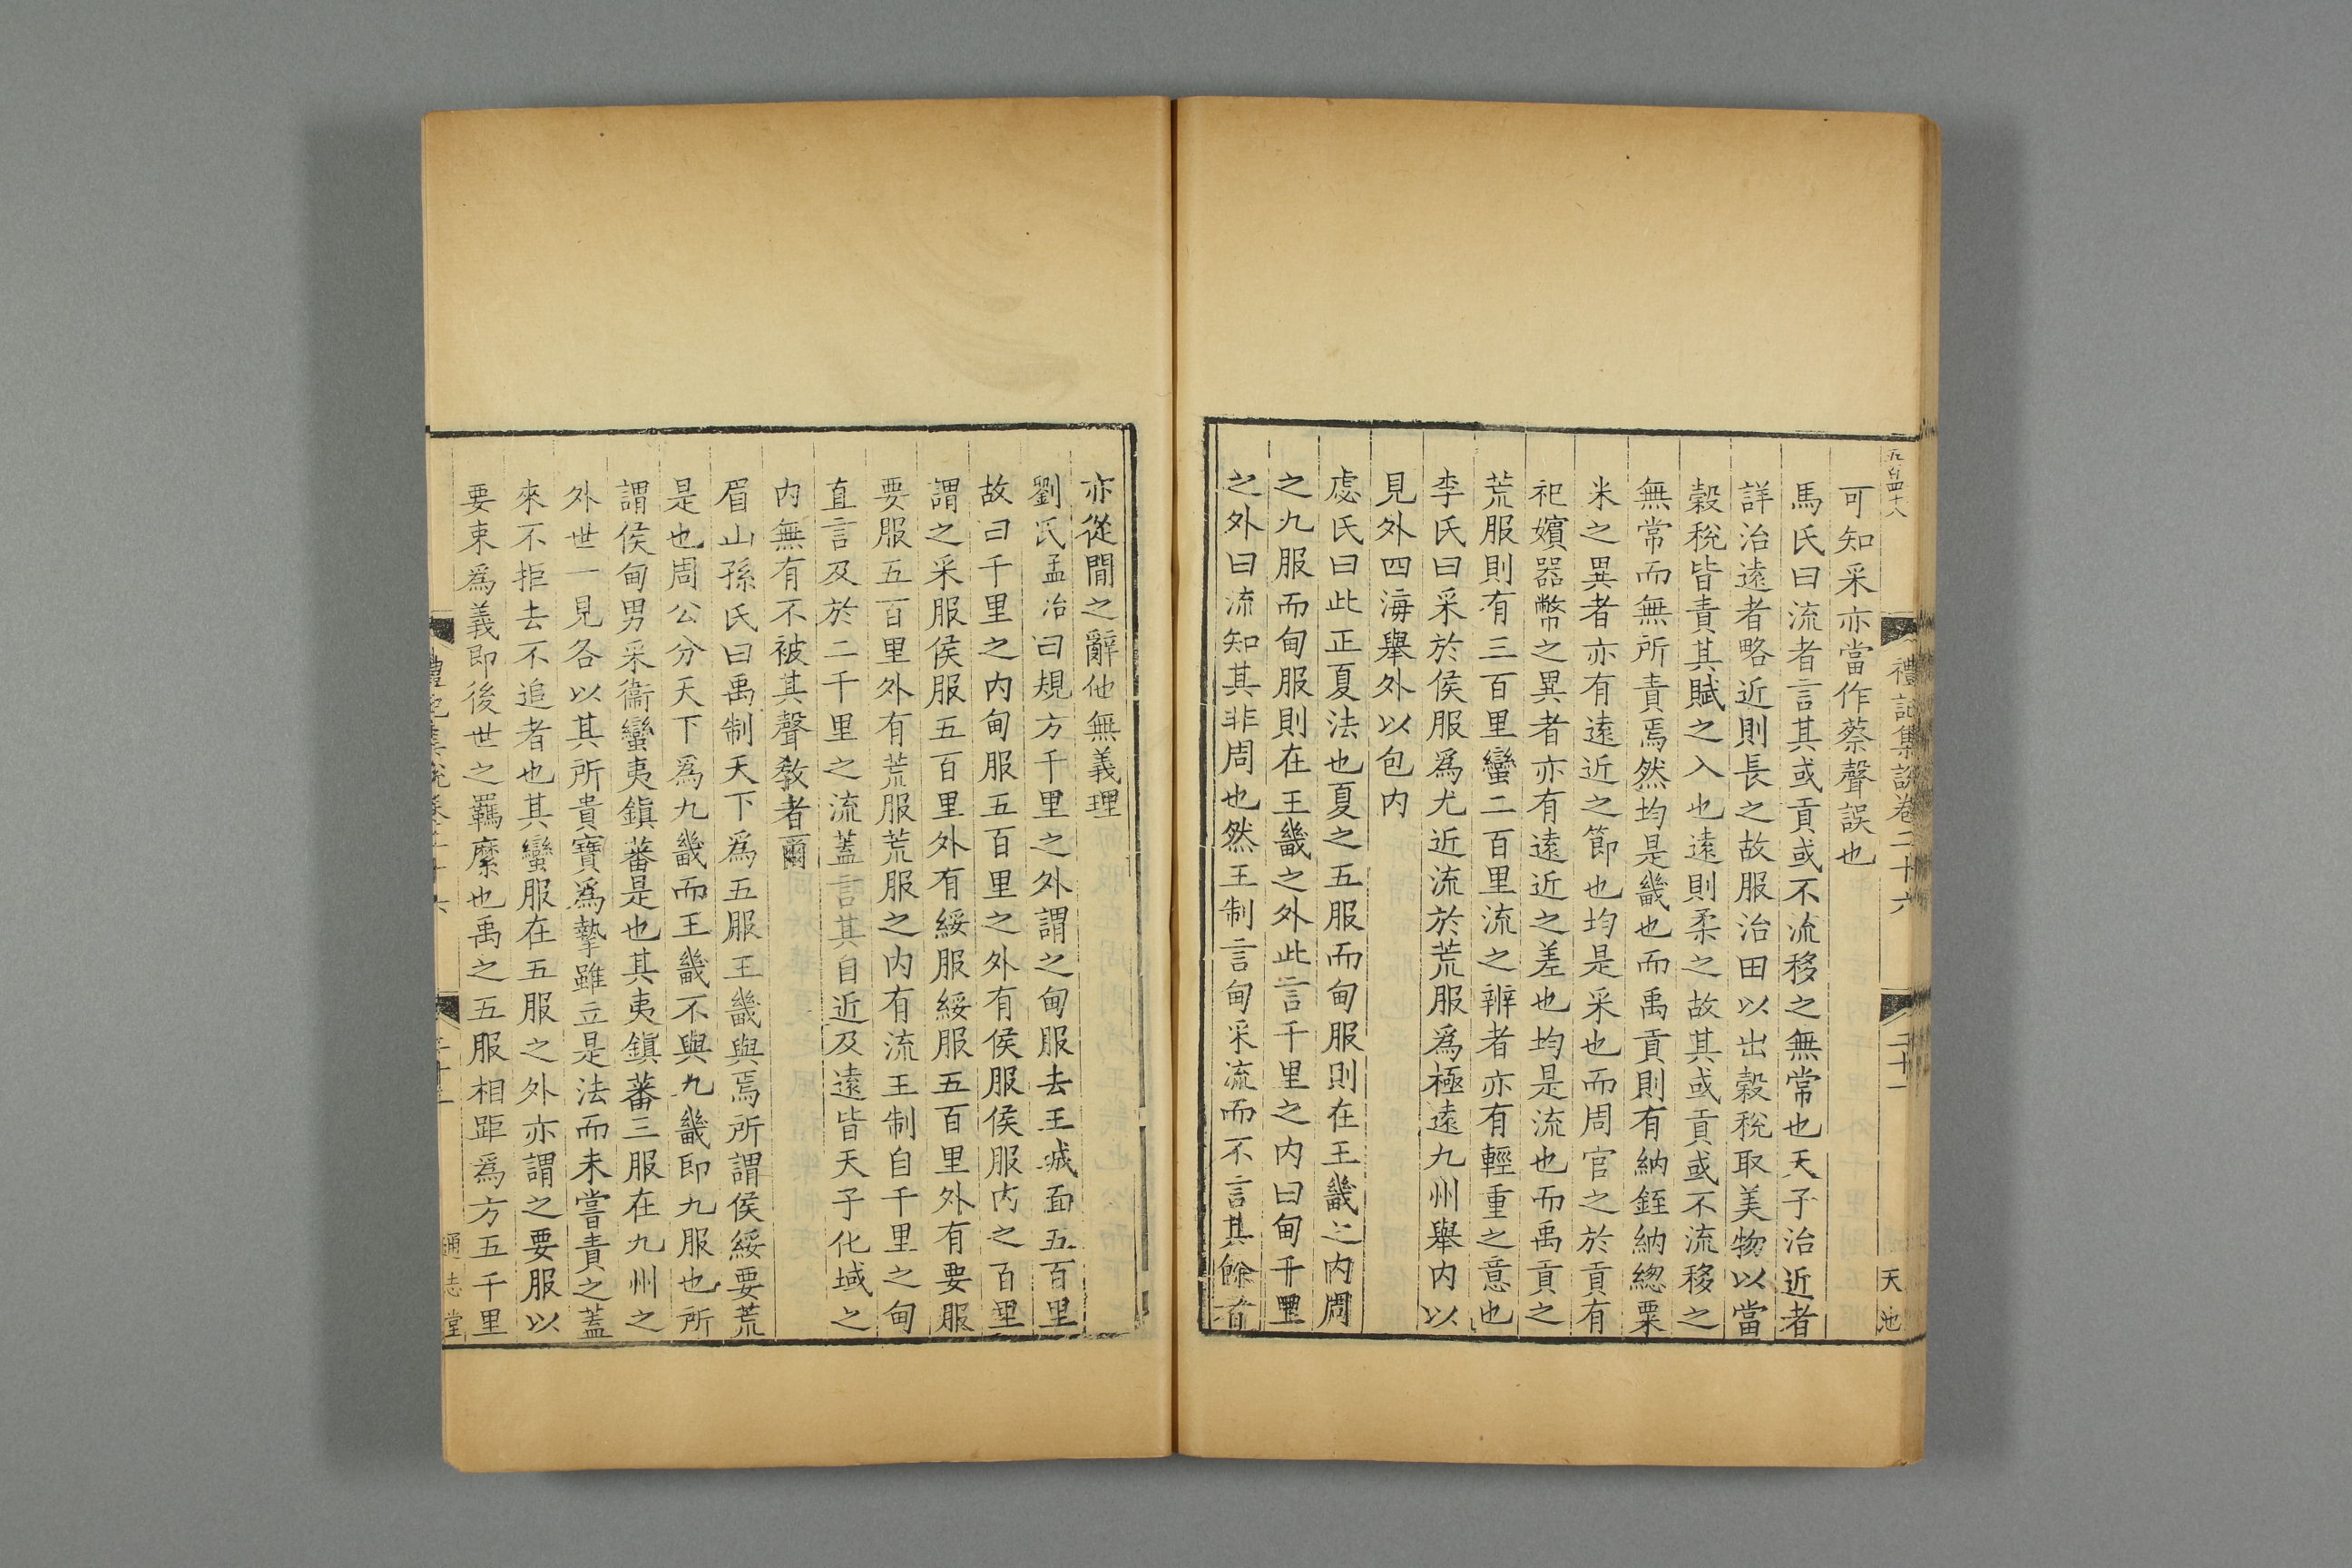 五百四十八
禮記集說卷二十六
二十一
天池
可知采亦當作蔡聲誤也
馬氏曰流者言其或貢或不流移之無常也天子治近者
詳治遠者略近則長之故服治田以出穀稅取美物以當
穀稅皆責其賦之入也遠則柔之故其或貢或不流移之
無常而無所責焉然均是畿也而禹貢則有納銍納緫粟
米之異者亦有遠近之節也均是采也而周官之於貢有
祀嬪器幣之異者亦有遠近之差也均是流也而禹貢之
荒服則有三百里蠻二百里流之辨者亦有輕重之意也
李氏曰采於侯服爲尤近流於荒服爲極遠九州舉内以
見外四海舉外以包内
慮氏曰此正夏法也夏之五服而甸服則在王畿之内周
之九服而甸服則在王畿之外此言千里之内曰甸千里
之外曰流知其非周也然王制言甸采流而不言其餘者
亦從閒之辭他無義理
劉氏孟冶曰規方千里之外謂之甸服去王城面五百里
故曰千里之内甸服五百里之外有侯服侯服内之百里
謂之采服侯服五百里外有綏服綏服五百里外有要服
要服五百里外有荒服荒服之内有流王制自千里之甸
直言及於二千里之流蓋言其自近及遠皆天子化域之
内無有不被其聲敎者爾
眉山孫氏曰禹制天下爲五服王畿與焉所謂侯綏要荒
是也周公分天下爲九畿而王畿不與九畿即九服也所
謂侯甸男采衞蠻夷鎭蕃是也其夷鎭蕃三服在九州之
外世一見各以其所貴寶爲摯雖立是法而未嘗責之蓋
來不拒去不追者也其蠻服在五服之外亦謂之要服以
要束爲義即後世之羈縻也禹之五服相距爲方五千里
禮記集說卷二十六
通志堂